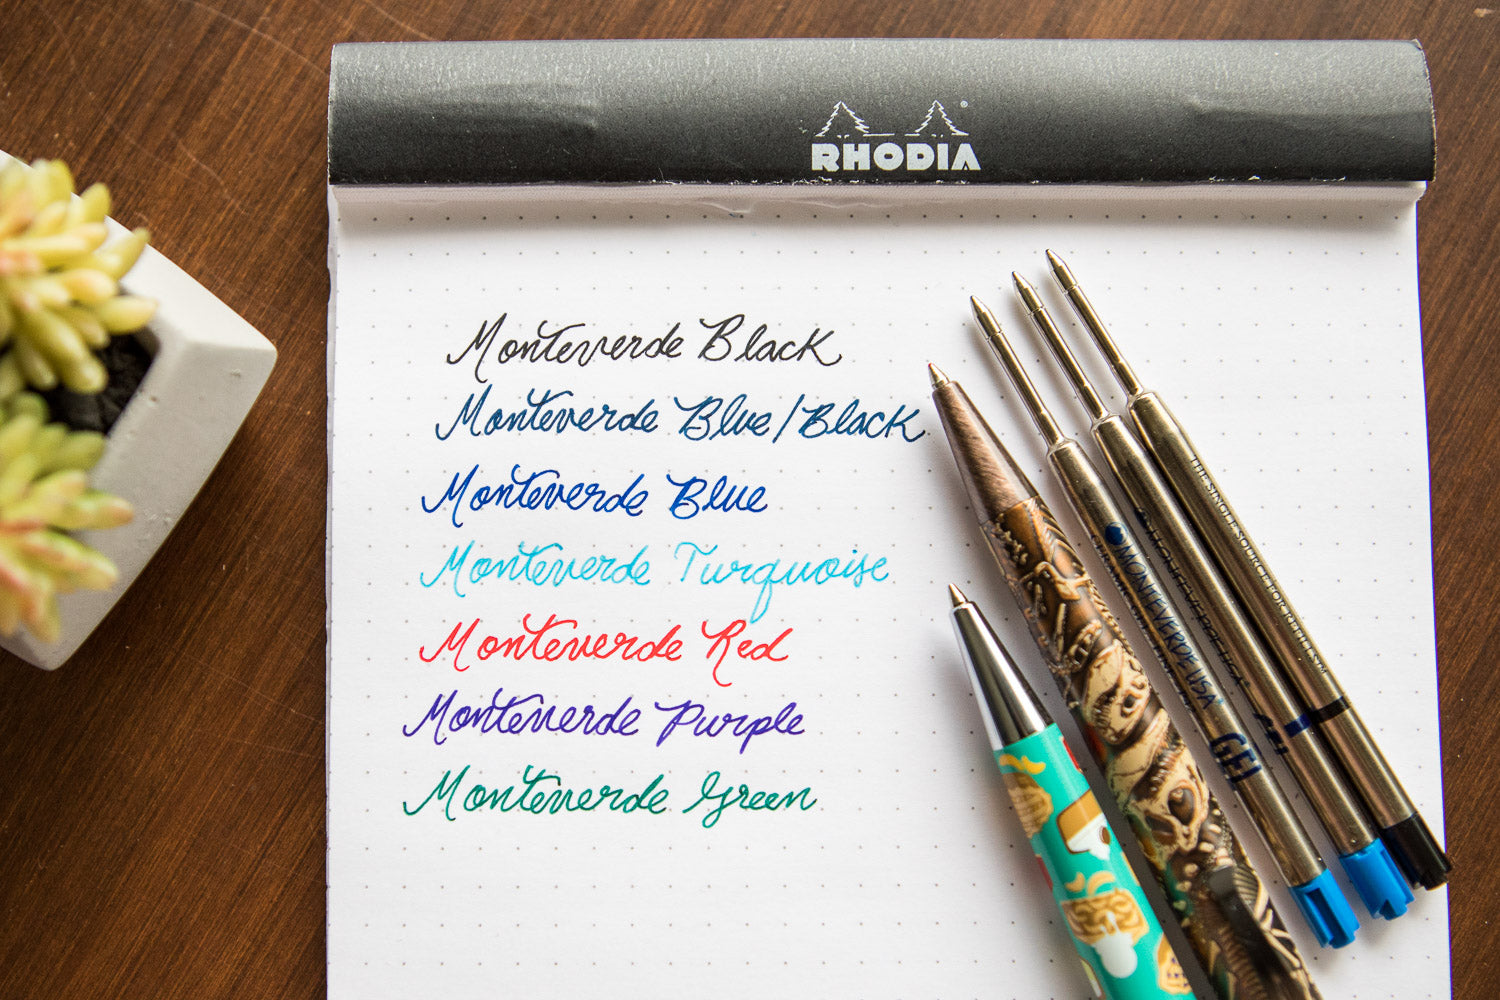 RHODIA
Monteverde Black
Monteverde Blue/Black
Monteverde Blue
Monteverde Turquoise
Monteverde Red
Monteverde Purple
Monteverde Green
THE SINGLE SOURCE FOR REFILLS
MONTEVERDE USA
GEL